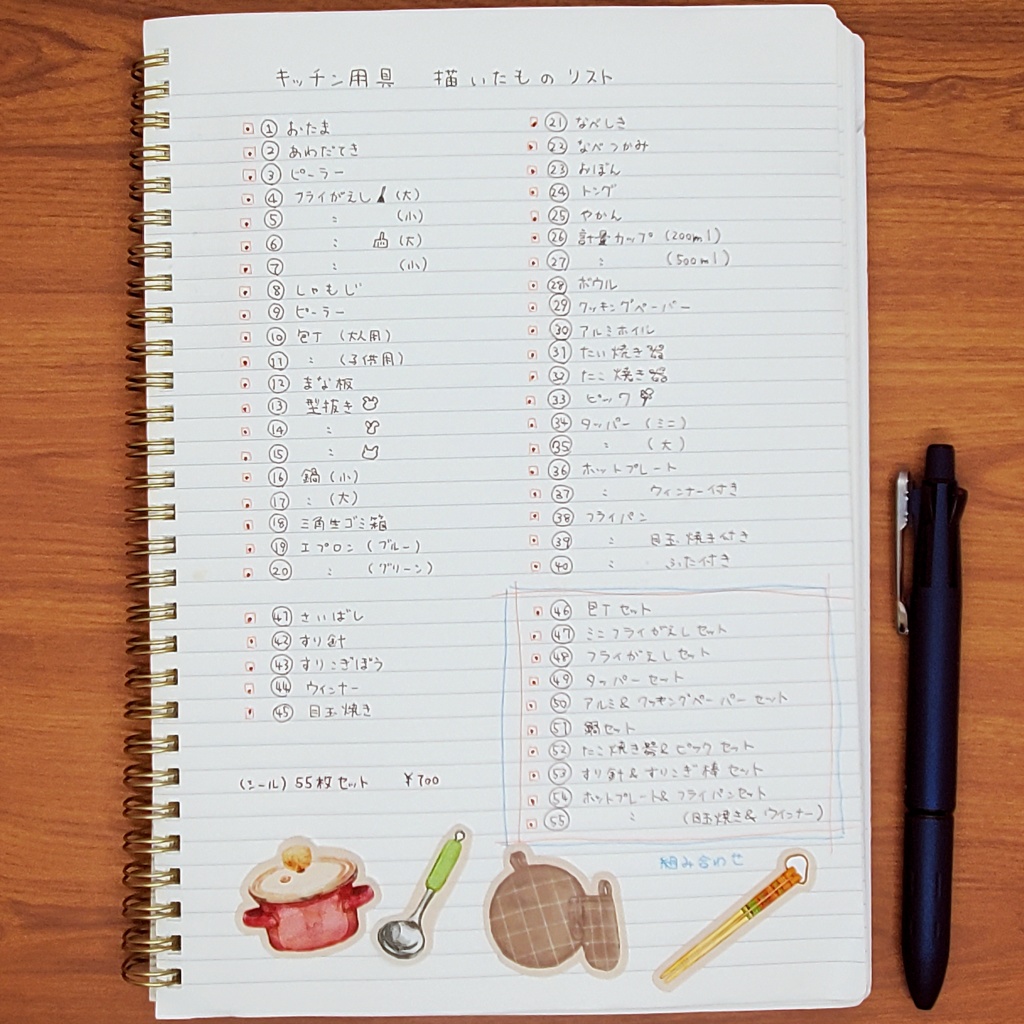 キッチン用具　描いたものリスト
① おたま
② あわだてき
③ ピーラー
④ フライがえし (大)
⑤ 〃 (小)
⑥ 〃 (大)
⑦ 〃 (小)
⑧ しゃもじ
⑨ ピーラー
⑩ 包丁 (大人用)
⑪ 〃 (子供用)
⑫ まな板
⑬ 型抜き
⑭ 〃
⑮ 〃
⑯ 鍋 (小)
⑰ 〃 (大)
⑱ 三角生ゴミ箱
⑲ エプロン (ブルー)
⑳ 〃 (グリーン)
㉑ なべしき
㉒ なべつかみ
㉓ おぼん
㉔ トング
㉕ やかん
㉖ 計量カップ (200ml)
㉗ 〃 (500ml)
㉘ ボウル
㉙ クッキングペーパー
㉚ アルミホイル
㉛ たい焼き器
㉜ たこ焼き器
㉝ ピック
㉞ タッパー (ミニ)
㉟ 〃 (大)
㊱ ホットプレート
㊲ 〃 ウィンナー付き
㊳ フライパン
㊴ 〃 目玉焼き付き
㊵ 〃 ふた付き
㊶ さいばし
㊷ すり針
㊸ すりこぎぼう
㊹ ウィンナー
㊺ 目玉焼き
㊻ 包丁セット
㊼ ミニフライがえしセット
㊽ フライがえしセット
㊾ タッパーセット
㊿ アルミ&クッキングペーパーセット
51 鍋セット
52 たこ焼き器&ピックセット
53 すり針&すりこぎ棒セット
54 ホットプレート&フライパンセット
55 〃 (目玉焼き&ウインナー)
組み合わせ
(シール) 55枚セット　¥700